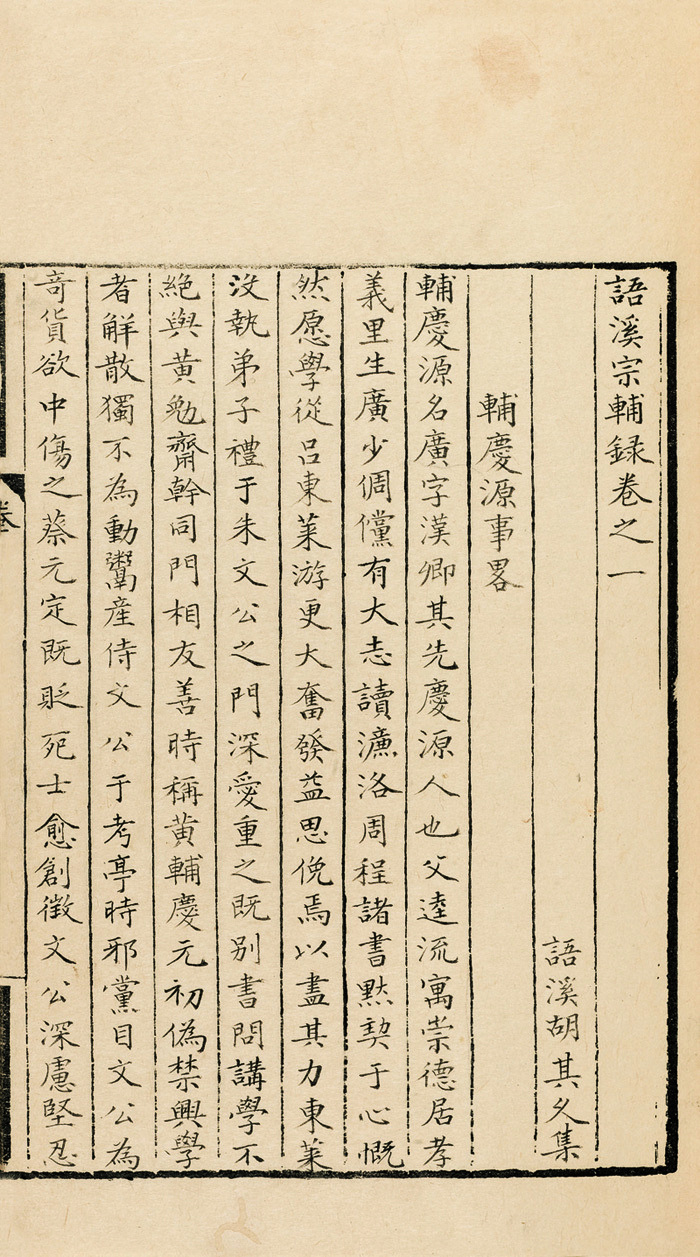 語溪宗輔録卷之一
語溪胡其久集
輔慶源事畧
輔慶源名廣字漢卿其先慶源人也父逵流寓崇德居孝
義里生廣少倜儻有大志讀濂洛周程諸書黙契于心慨
然愿學從呂東萊游更大奮發益思俛焉以盡其力東萊
沒執弟子禮于朱文公之門深愛重之既别書問講學不
絕與黄勉齋幹同門相友善時稱黄輔慶元初偽禁興學
者解散獨不為動鬻産侍文公于考亭時邪黨目文公為
竒貨欲中傷之蔡元定既貶死士愈創徵文公深慮堅忍